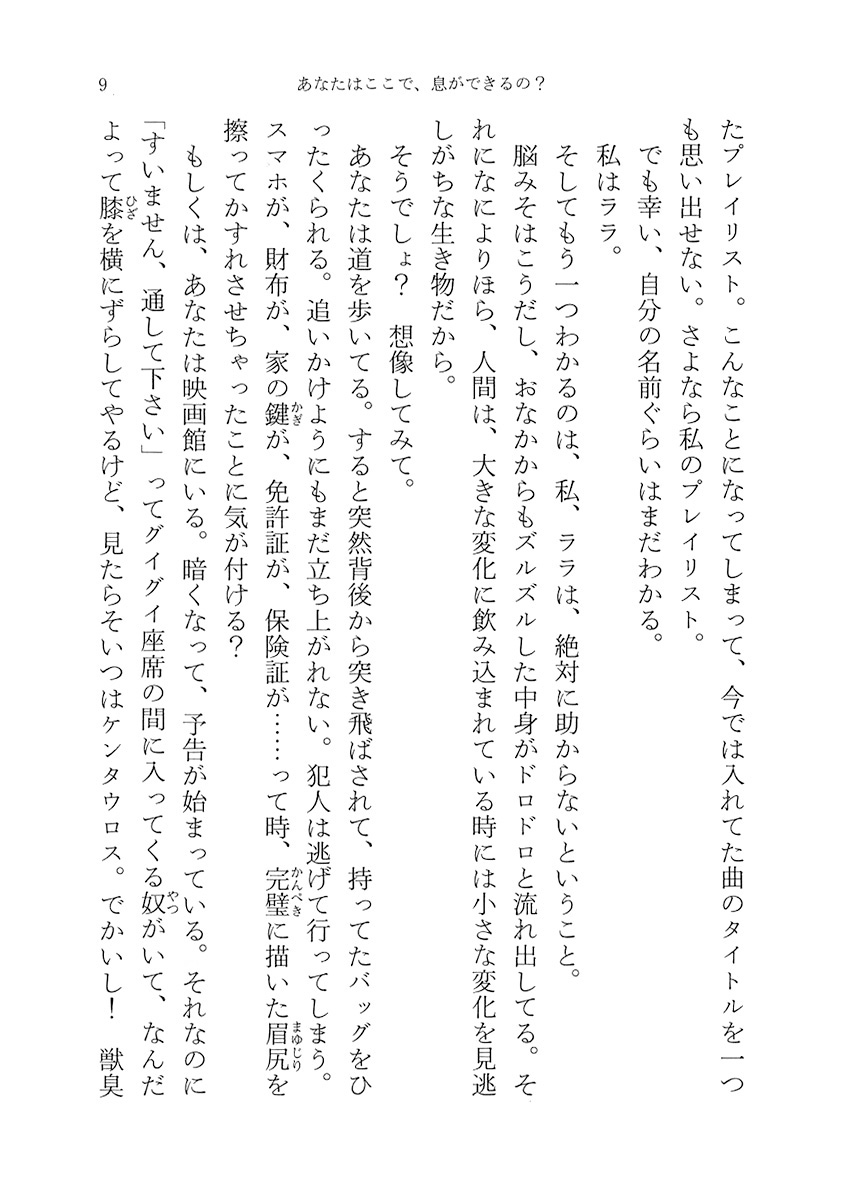 9
あなたはここで、息ができるの？
たプレイリスト。こんなことになってしまって、今では入れてた曲のタイトルを一つ
も思い出せない。さよなら私のプレイリスト。
でも幸い、自分の名前ぐらいはまだわかる。
私はララ。
そしてもう一つわかるのは、私、ララは、絶対に助からないということ。
脳みそはこうだし、おなかからもズルズルした中身がドロドロと流れ出してる。そ
れになによりほら、人間は、大きな変化に飲み込まれている時には小さな変化を見逃
しがちな生き物だから。
そうでしょ？　想像してみて。
あなたは道を歩いてる。すると突然背後から突き飛ばされて、持ってたバッグをひ
ったくられる。追いかけようにもまだ立ち上がれない。犯人は逃げて行ってしまう。
スマホが、財布が、家の鍵が、免許証が、保険証が……って時、完璧に描いた眉尻を
擦ってかすれさせちゃったことに気が付ける？
もしくは、あなたは映画館にいる。暗くなって、予告が始まっている。それなのに
「すいません、通して下さい」ってグイグイ座席の間に入ってくる奴がいて、なんだ
よって膝を横にずらしてやるけど、見たらそいつはケンタウロス。でかいし！　獣臭